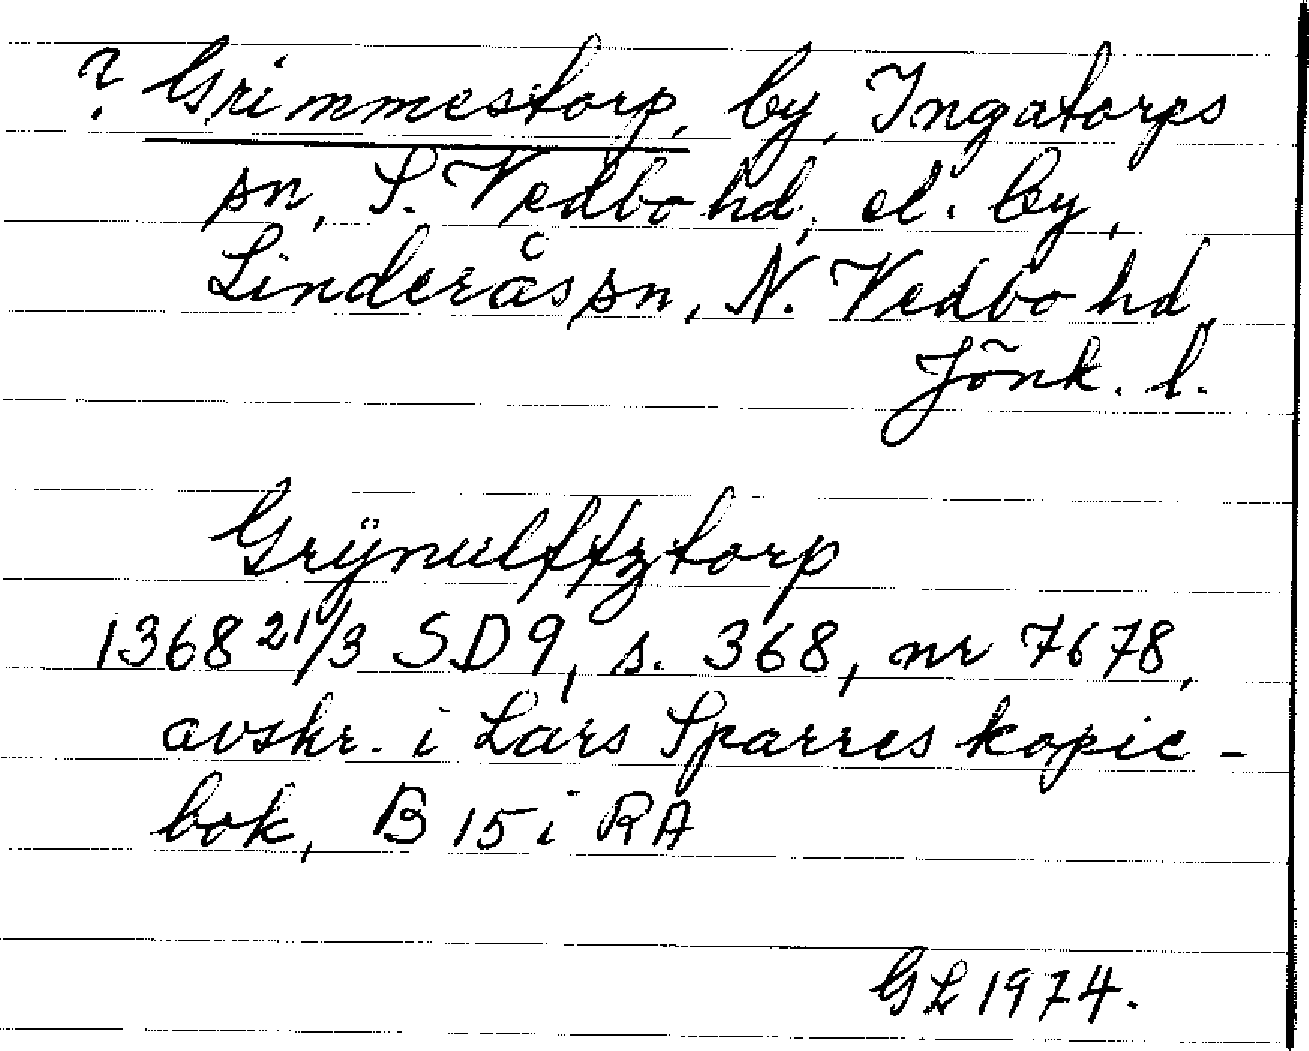 ? Grimmestorp, by, Ingatorps
sn, S. Vedbo hd, el. by,
Linderås sn, N. Vedbo hd,
Jönk. l.
Grÿnulffztorp
1368 21/3 SD 9, s. 368, nr 7678,
avskr. i Lars Sparres kopie-
bok, B 15 i RA
GL 1974.